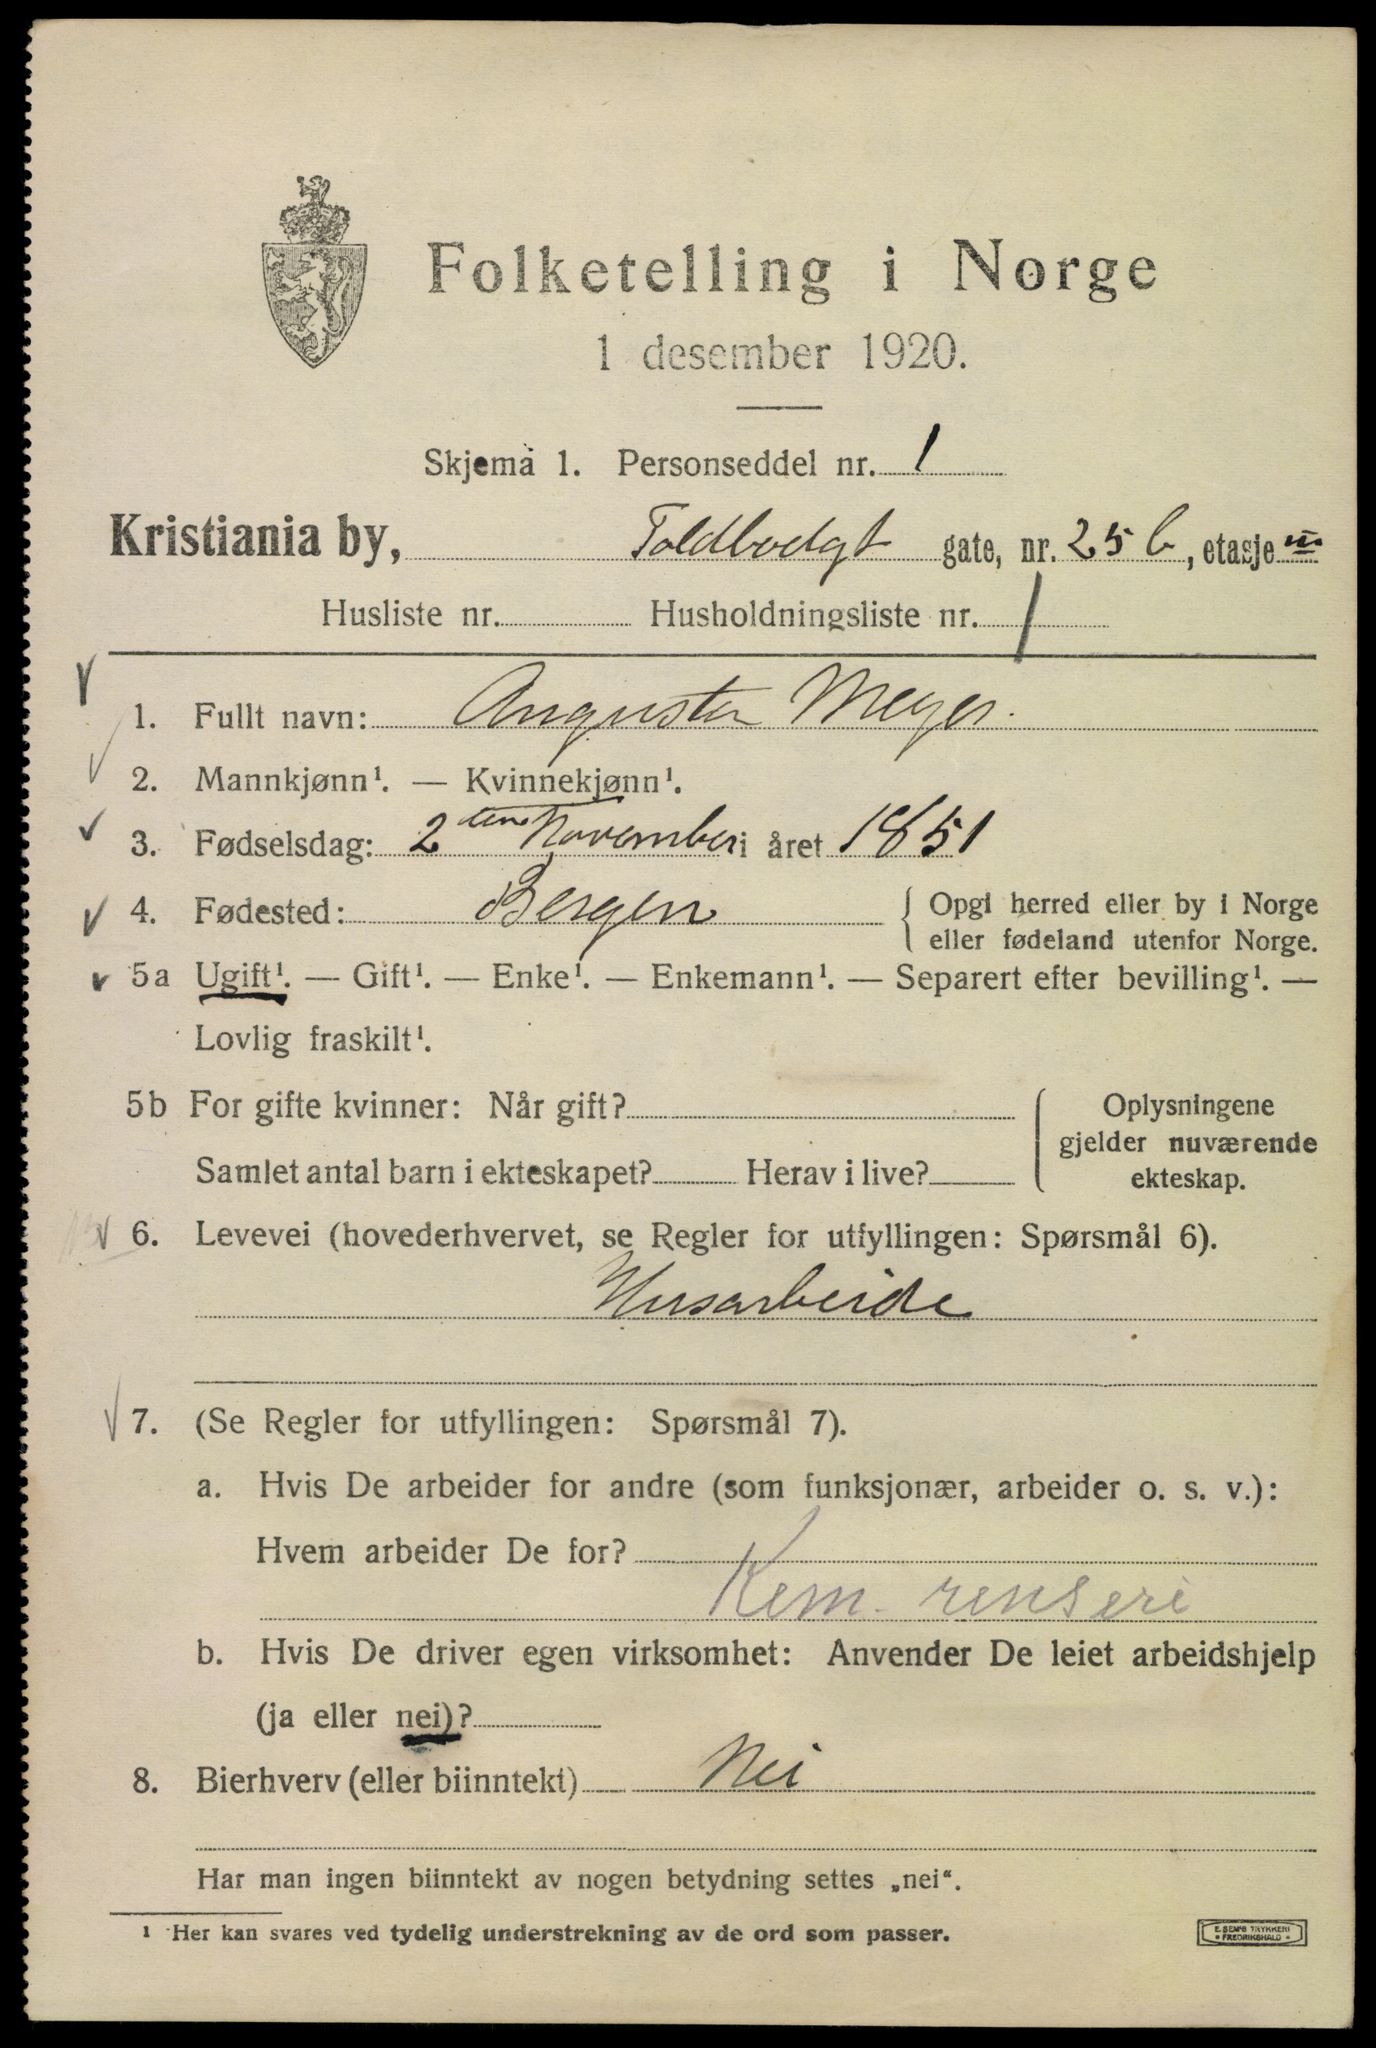 Folketelling i Norge
1 desember 1920.
Skjema 1. Personseddel nr. 1
Kristiania by, Toldbodgt gate, nr. 25 b, etasje III
Husliste nr. Husholdningsliste nr. 1
1. Fullt navn: Augusta Meyer.
2. Mannkjønn¹. — Kvinnekjønn¹.
3. Fødselsdag: 2den November i året 1851
4. Fødested: Bergen { Opgi herred eller by i Norge
eller fødeland utenfor Norge.
5a Ugift¹. — Gift¹. — Enke¹. — Enkemann¹. — Separert efter bevilling¹. —
Lovlig fraskilt¹.
5b For gifte kvinner: Når gift? { Oplysningene
gjelder nuværende
Samlet antal barn i ekteskapet? Herav i live? ekteskap.
6. Levevei (hovederhvervet, se Regler for utfyllingen: Spørsmål 6).
Husarbeide
7. (Se Regler for utfyllingen: Spørsmål 7).
a. Hvis De arbeider for andre (som funksjonær, arbeider o. s. v.):
Hvem arbeider De for?
Kem. renseri
b. Hvis De driver egen virksomhet: Anvender De leiet arbeidshjelp
(ja eller nei)?
8. Bierhverv (eller biinntekt) Nei
Har man ingen biinntekt av nogen betydning settes „nei“.
¹ Her kan svares ved tydelig understrekning av de ord som passer.
E. SEM'S TRYKKERI
• FREDRIKSHALD •